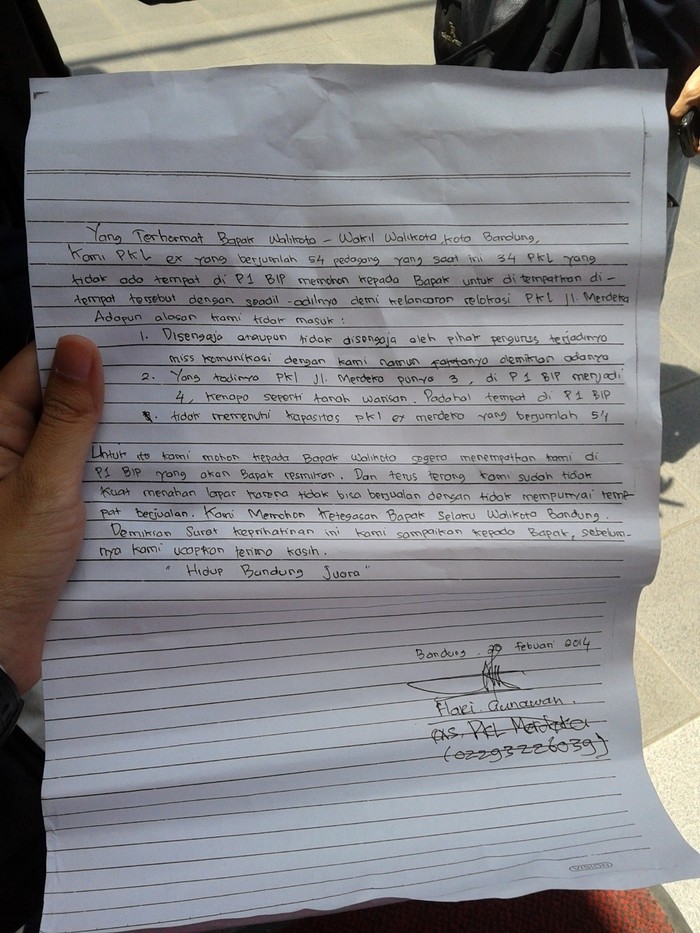 Yang Terhormat Bapak Walikota - Wakil Walikota kota Bandung,
Kami PKL ex yang berjumlah 54 pedagang yang saat ini 34 PKL yang
tidak ada tempat di P1 BIP memohon kepada Bapak untuk di tempatkan di-
tempat tersebut dengan seadil-adilnya demi kelancaran relokasi PKL Jl. Merdeka
Adapun alasan kami tidak masuk :
1. Disengaja ataupun tidak disengaja oleh pihak pengurus terjadinya
miss komunikasi dengan kami namun faktanya demikian adanya
2. Yang tadinya PKL Jl. Merdeka punya 3, di P1 BIP menjadi
4, kenapa seperti tanah warisan. Padahal tempat di P1 BIP
tidak memenuhi kapasitas PKL ex merdeka yang berjumlah 54
Untuk itu kami mohon kepada Bapak Walikota segera menempatkan kami di
P1 BIP yang akan Bapak resmikan. Dan terus terang kami sudah tidak
kuat menahan lapar karena tidak bisa berjualan dengan tidak mempunyai tem-
pat berjualan. Kami Memohon Ketegasan Bapak Selaku Walikota Bandung.
Demikian Surat keprihatinan ini kami sampaikan kepada Bapak, sebelum-
nya kami ucapkan terima kasih.
" Hidup Bandung Juara "
Bandung, 20 Febuari 2014
Hari Gunawan.
PKL Merdeka
(02293226039)
VISION